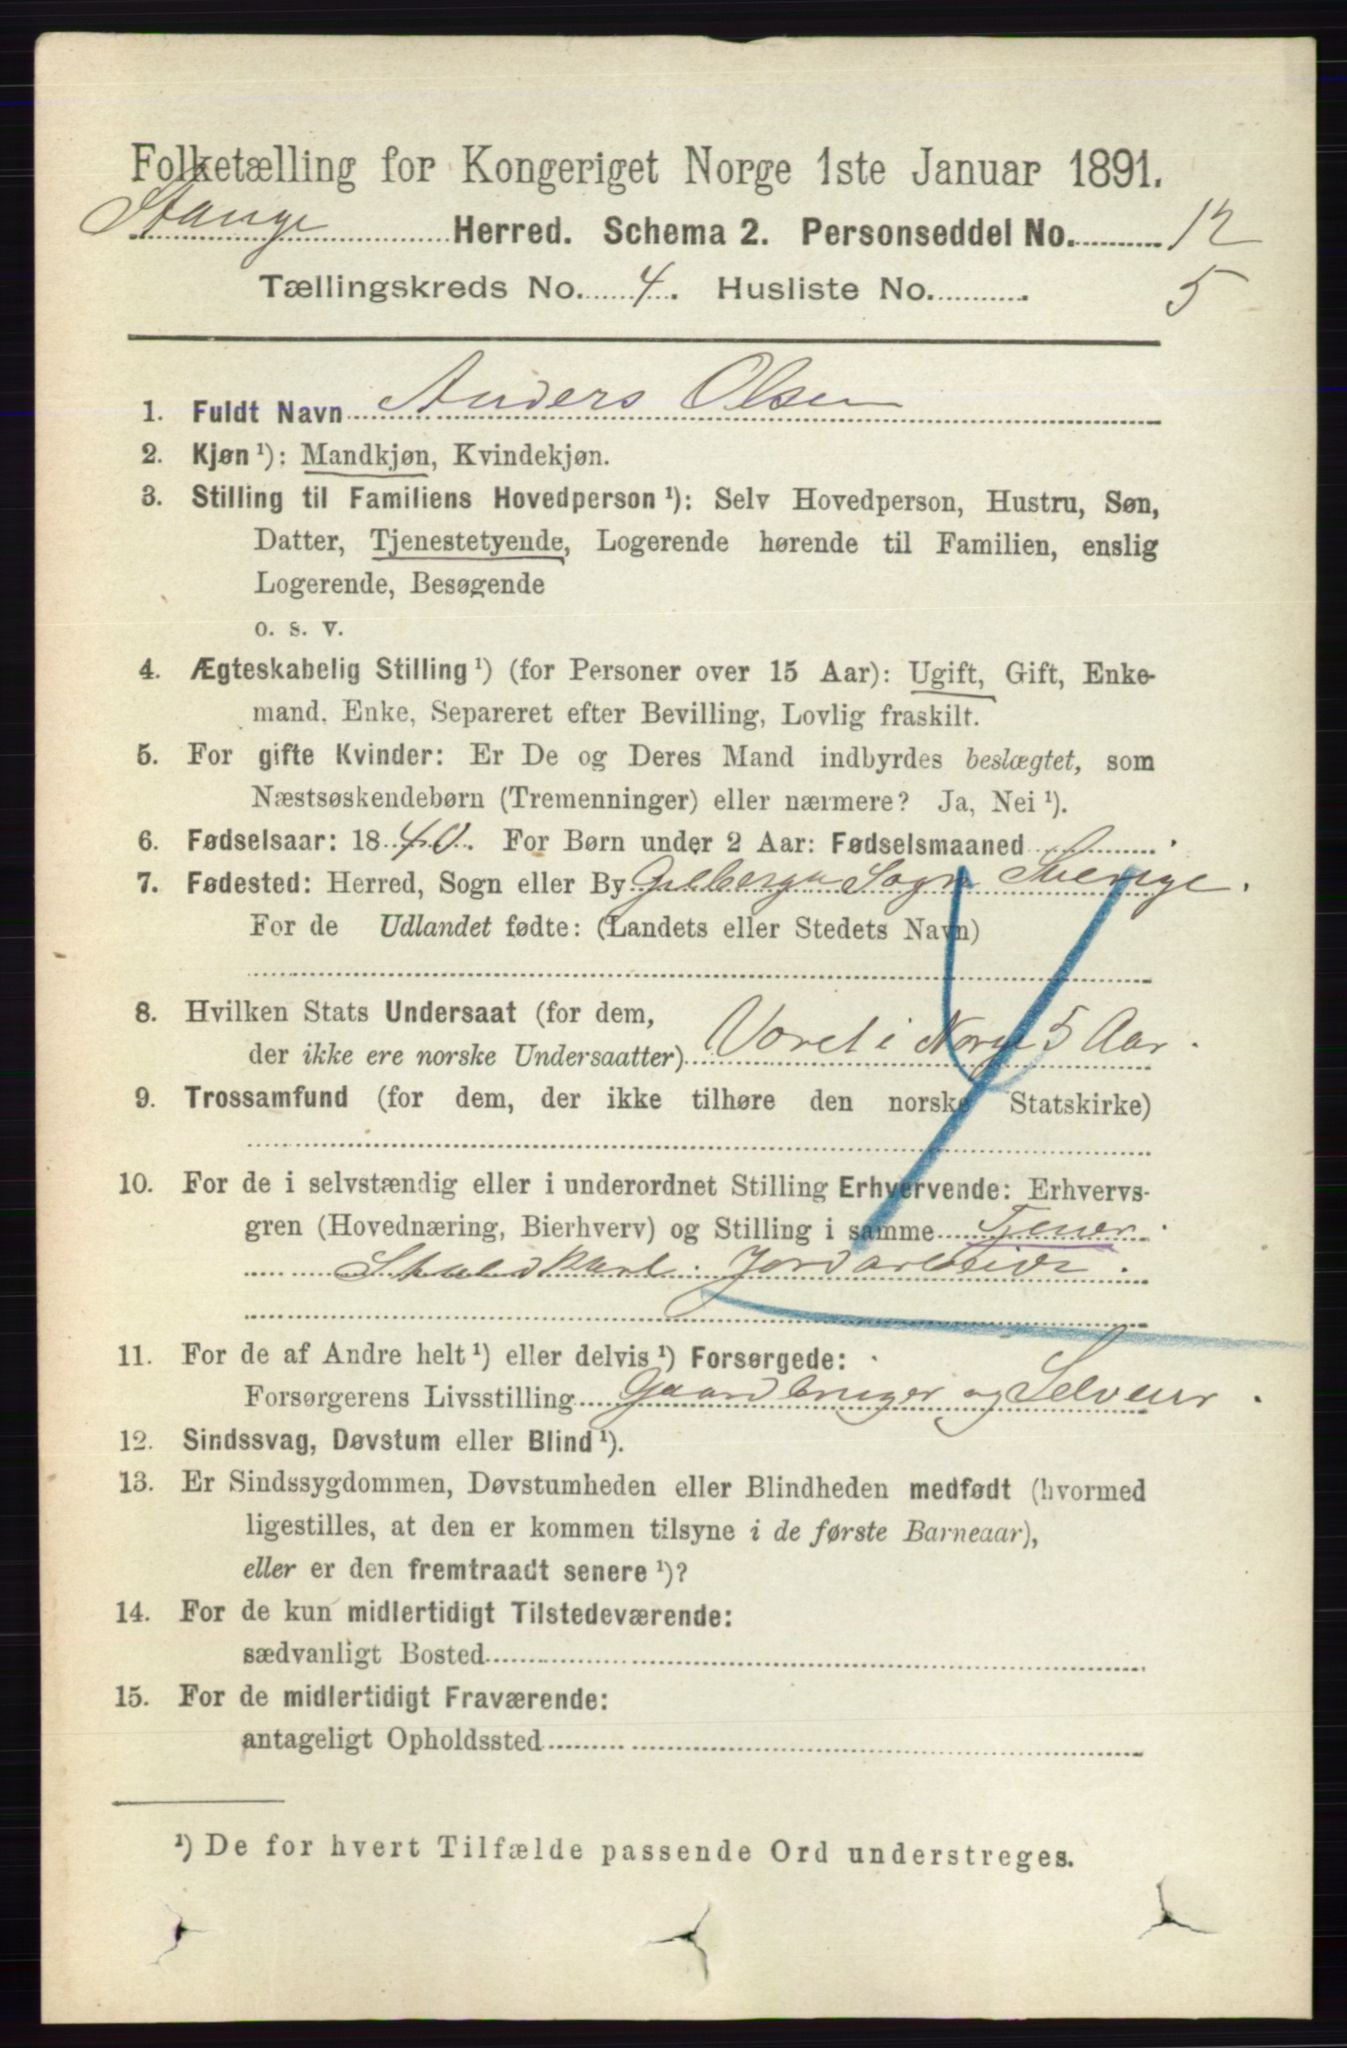 Folketælling for Kongeriget Norge 1ste Januar 1891.
Stange Herred. Schema 2. Personseddel No. 12
Tællingskreds No. 4. Husliste No. 5
1. Fuldt Navn Anders Olsen
2. Kjøn ¹): Mandkjøn, Kvindekjøn.
3. Stilling til Familiens Hovedperson ¹): Selv Hovedperson, Hustru, Søn,
Datter, Tjenestetyende, Logerende hørende til Familien, enslig
Logerende, Besøgende
o. s. v.
4. Ægteskabelig Stilling ¹) (for Personer over 15 Aar): Ugift, Gift, Enke-
mand, Enke, Separeret efter Bevilling, Lovlig fraskilt.
5. For gifte Kvinder: Er De og Deres Mand indbyrdes beslægtet, som
Næstsøskendebørn (Tremenninger) eller nærmere? Ja, Nei ¹).
6. Fødselsaar: 1840. For Børn under 2 Aar: Fødselsmaaned
7. Fødested: Herred, Sogn eller By Gilberga Sogn Sverige.
For de Udlandet fødte: (Landets eller Stedets Navn)
8. Hvilken Stats Undersaat (for dem,
der ikke ere norske Undersaatter) Voret i Norge 5 Aar.
9. Trossamfund (for dem, der ikke tilhøre den norske Statskirke)
10. For de i selvstændig eller i underordnet Stilling Erhvervende: Erhvervs-
gren (Hovednæring, Bierhverv) og Stilling i samme Tjener.
Staldkarl. Jordarbeide.
11. For de af Andre helt ¹) eller delvis ¹) Forsørgede:
Forsørgerens Livsstilling Gaardbruger og Selveier.
12. Sindssvag, Døvstum eller Blind ¹).
13. Er Sindssygdommen, Døvstumheden eller Blindheden medfødt (hvormed
ligestilles, at den er kommen tilsyne i de første Barneaar),
eller er den fremtraadt senere ¹)?
14. For de kun midlertidigt Tilstedeværende:
sædvanligt Bosted
15. For de midlertidigt Fraværende:
antageligt Opholdssted
¹) De for hvert Tilfælde passende Ord understreges.